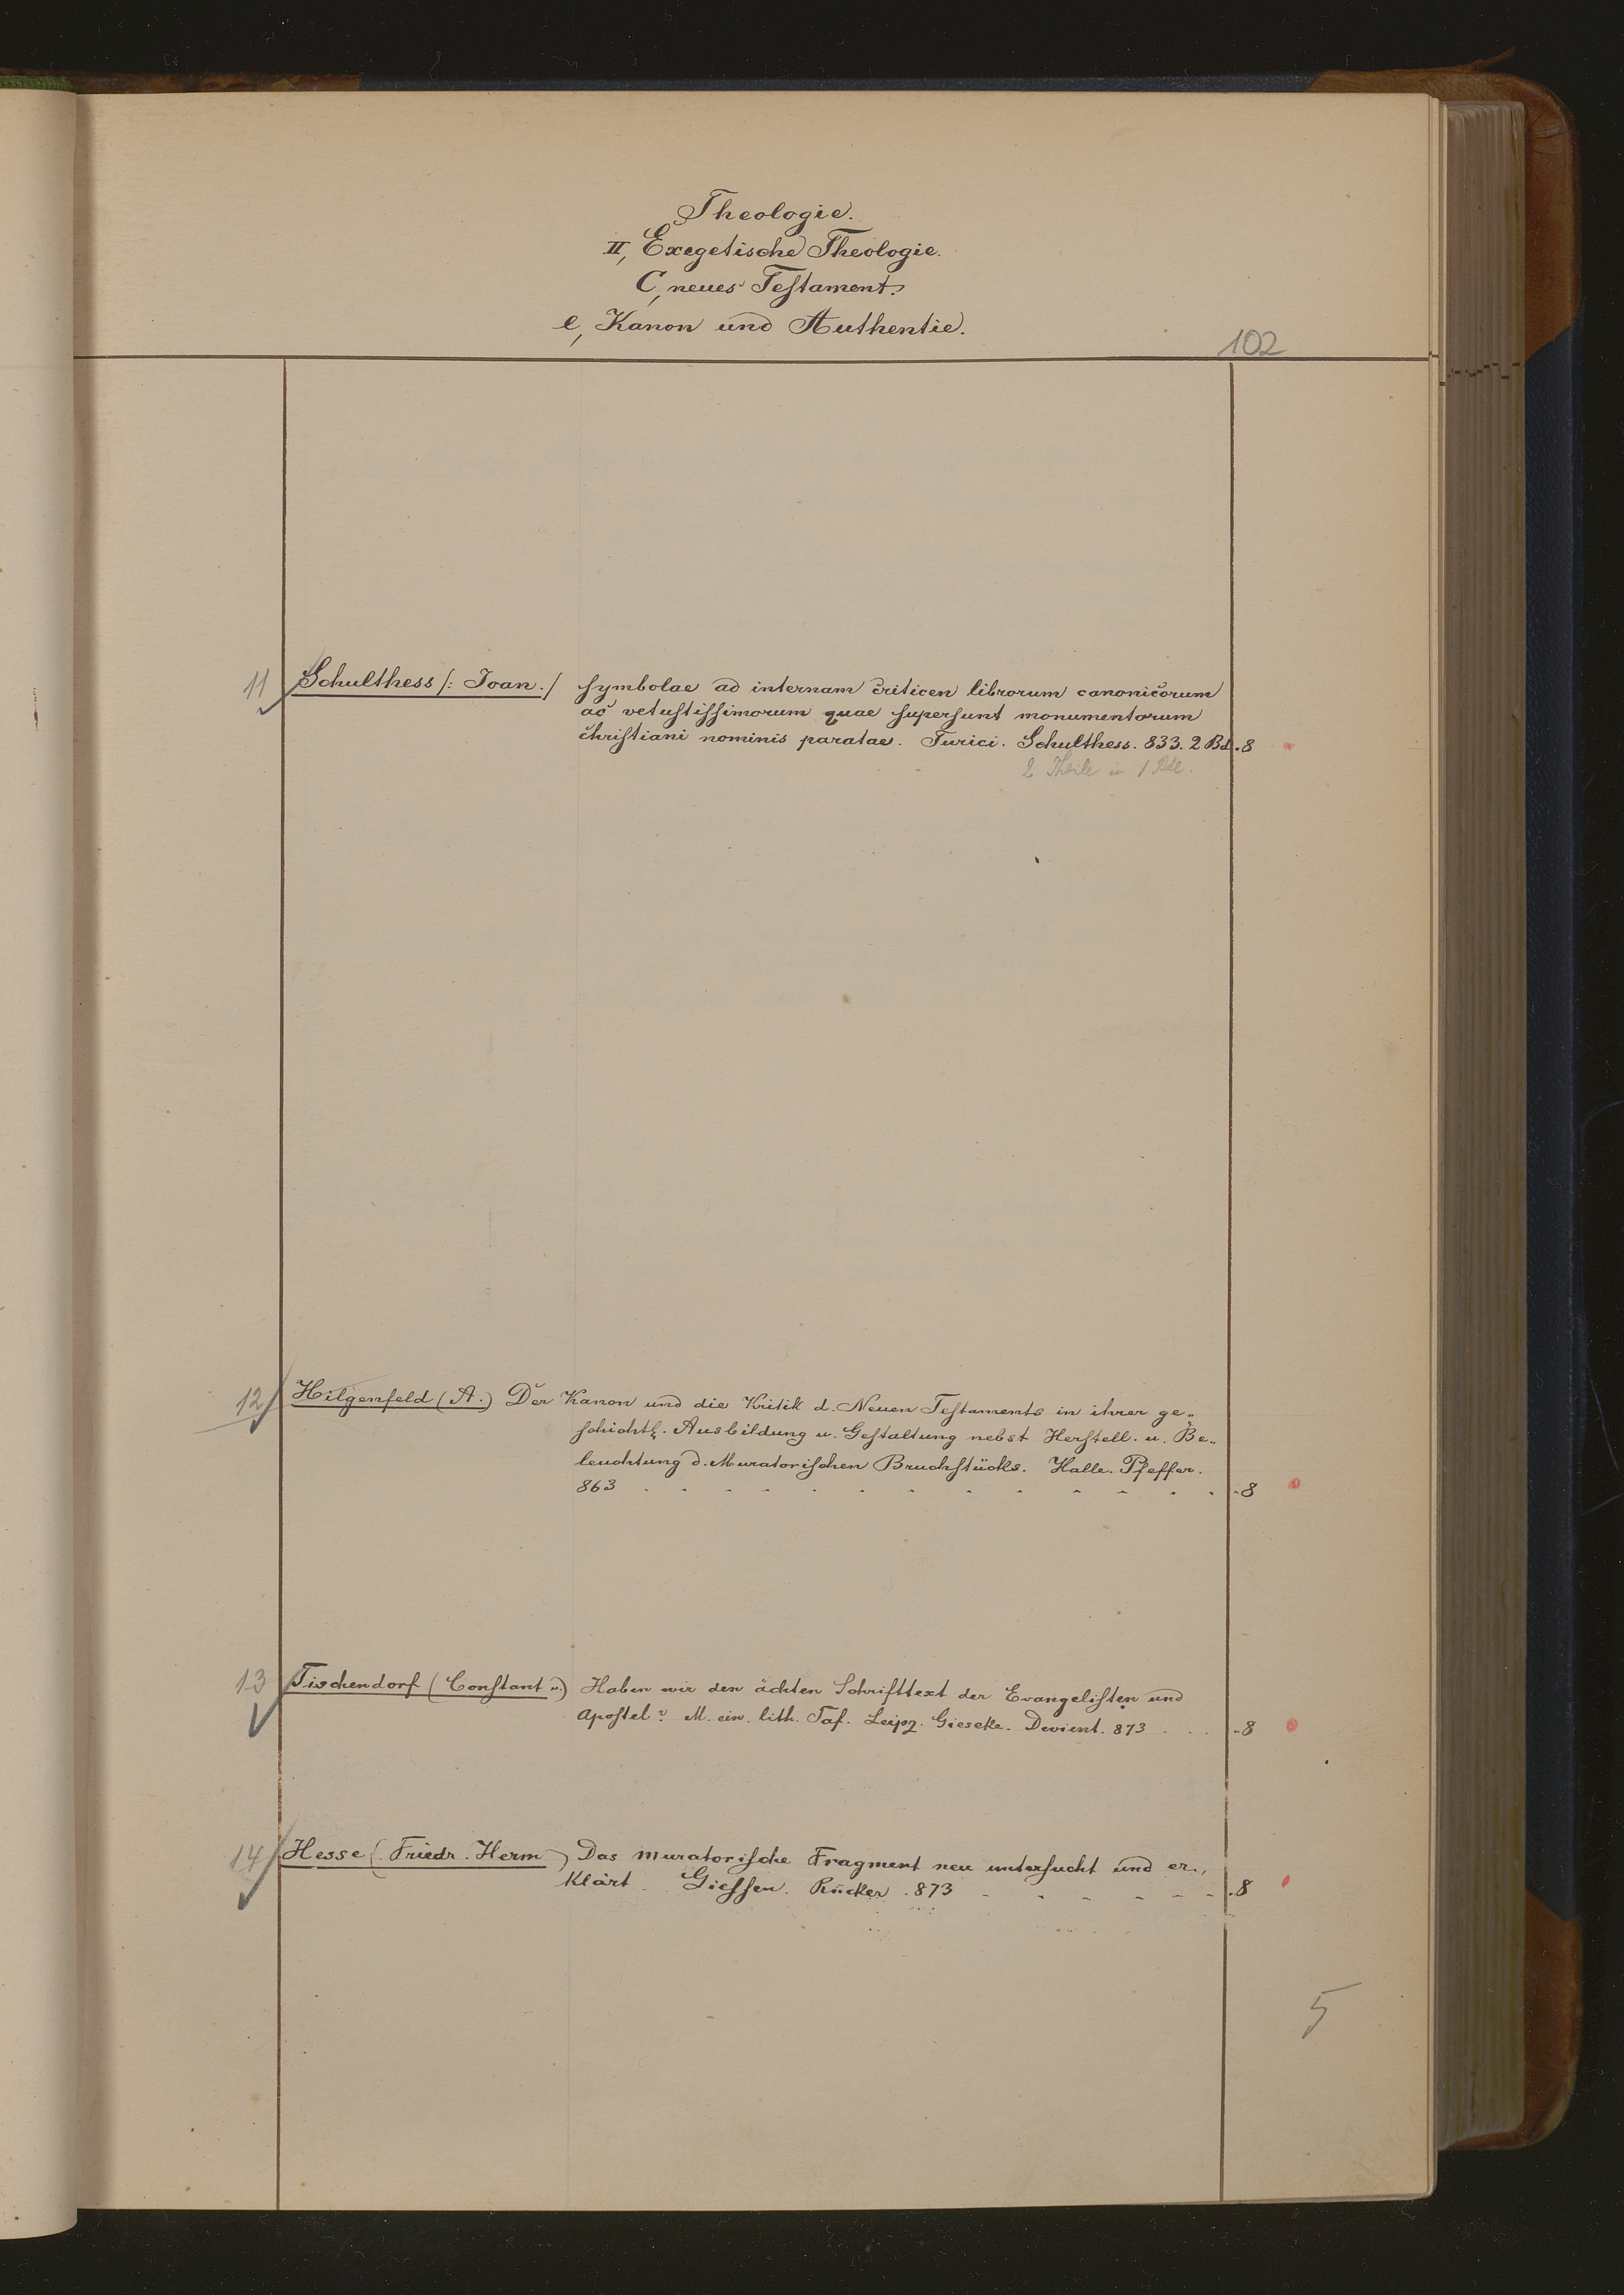 Theologie.
II, Exegetische Theologie.
C, neues Testament.
e, Kanon und Authentie.
102
11 Schulthess /: Ioan. / symbolae ad internam criticen librorum canonicorum
ac vetustissimorum quae supersunt monumentorum
christiani nominis paratae. Turici. Schulthess. 833. 2 Bd. 8
2 Theile in 1 Bde.
12 Hilgenfeld (A.) Der Kanon und die Kritik d. Neuen Testaments in ihrer ge„
schichtl. Ausbildung u. Gestaltung nebst Herstell. u. Be„
leuchtung d. Muratorischen Bruchstücks. Halle. Pfeffer.
863 . . . . . . . . . . . . . 8
13 Tischendorf (Constant v.) Haben wir den ächten Schrifttext der Evangelisten und
Apostel? M. ein. lith. Taf. Leipz. Gieseke. Devient. 873 . . . 8
14 Hesse (Friedr. Herm) Das muratorische Fragment neu untersucht und er„
klärt. Giessen. Ricker. 873 . . . . . . 8
5